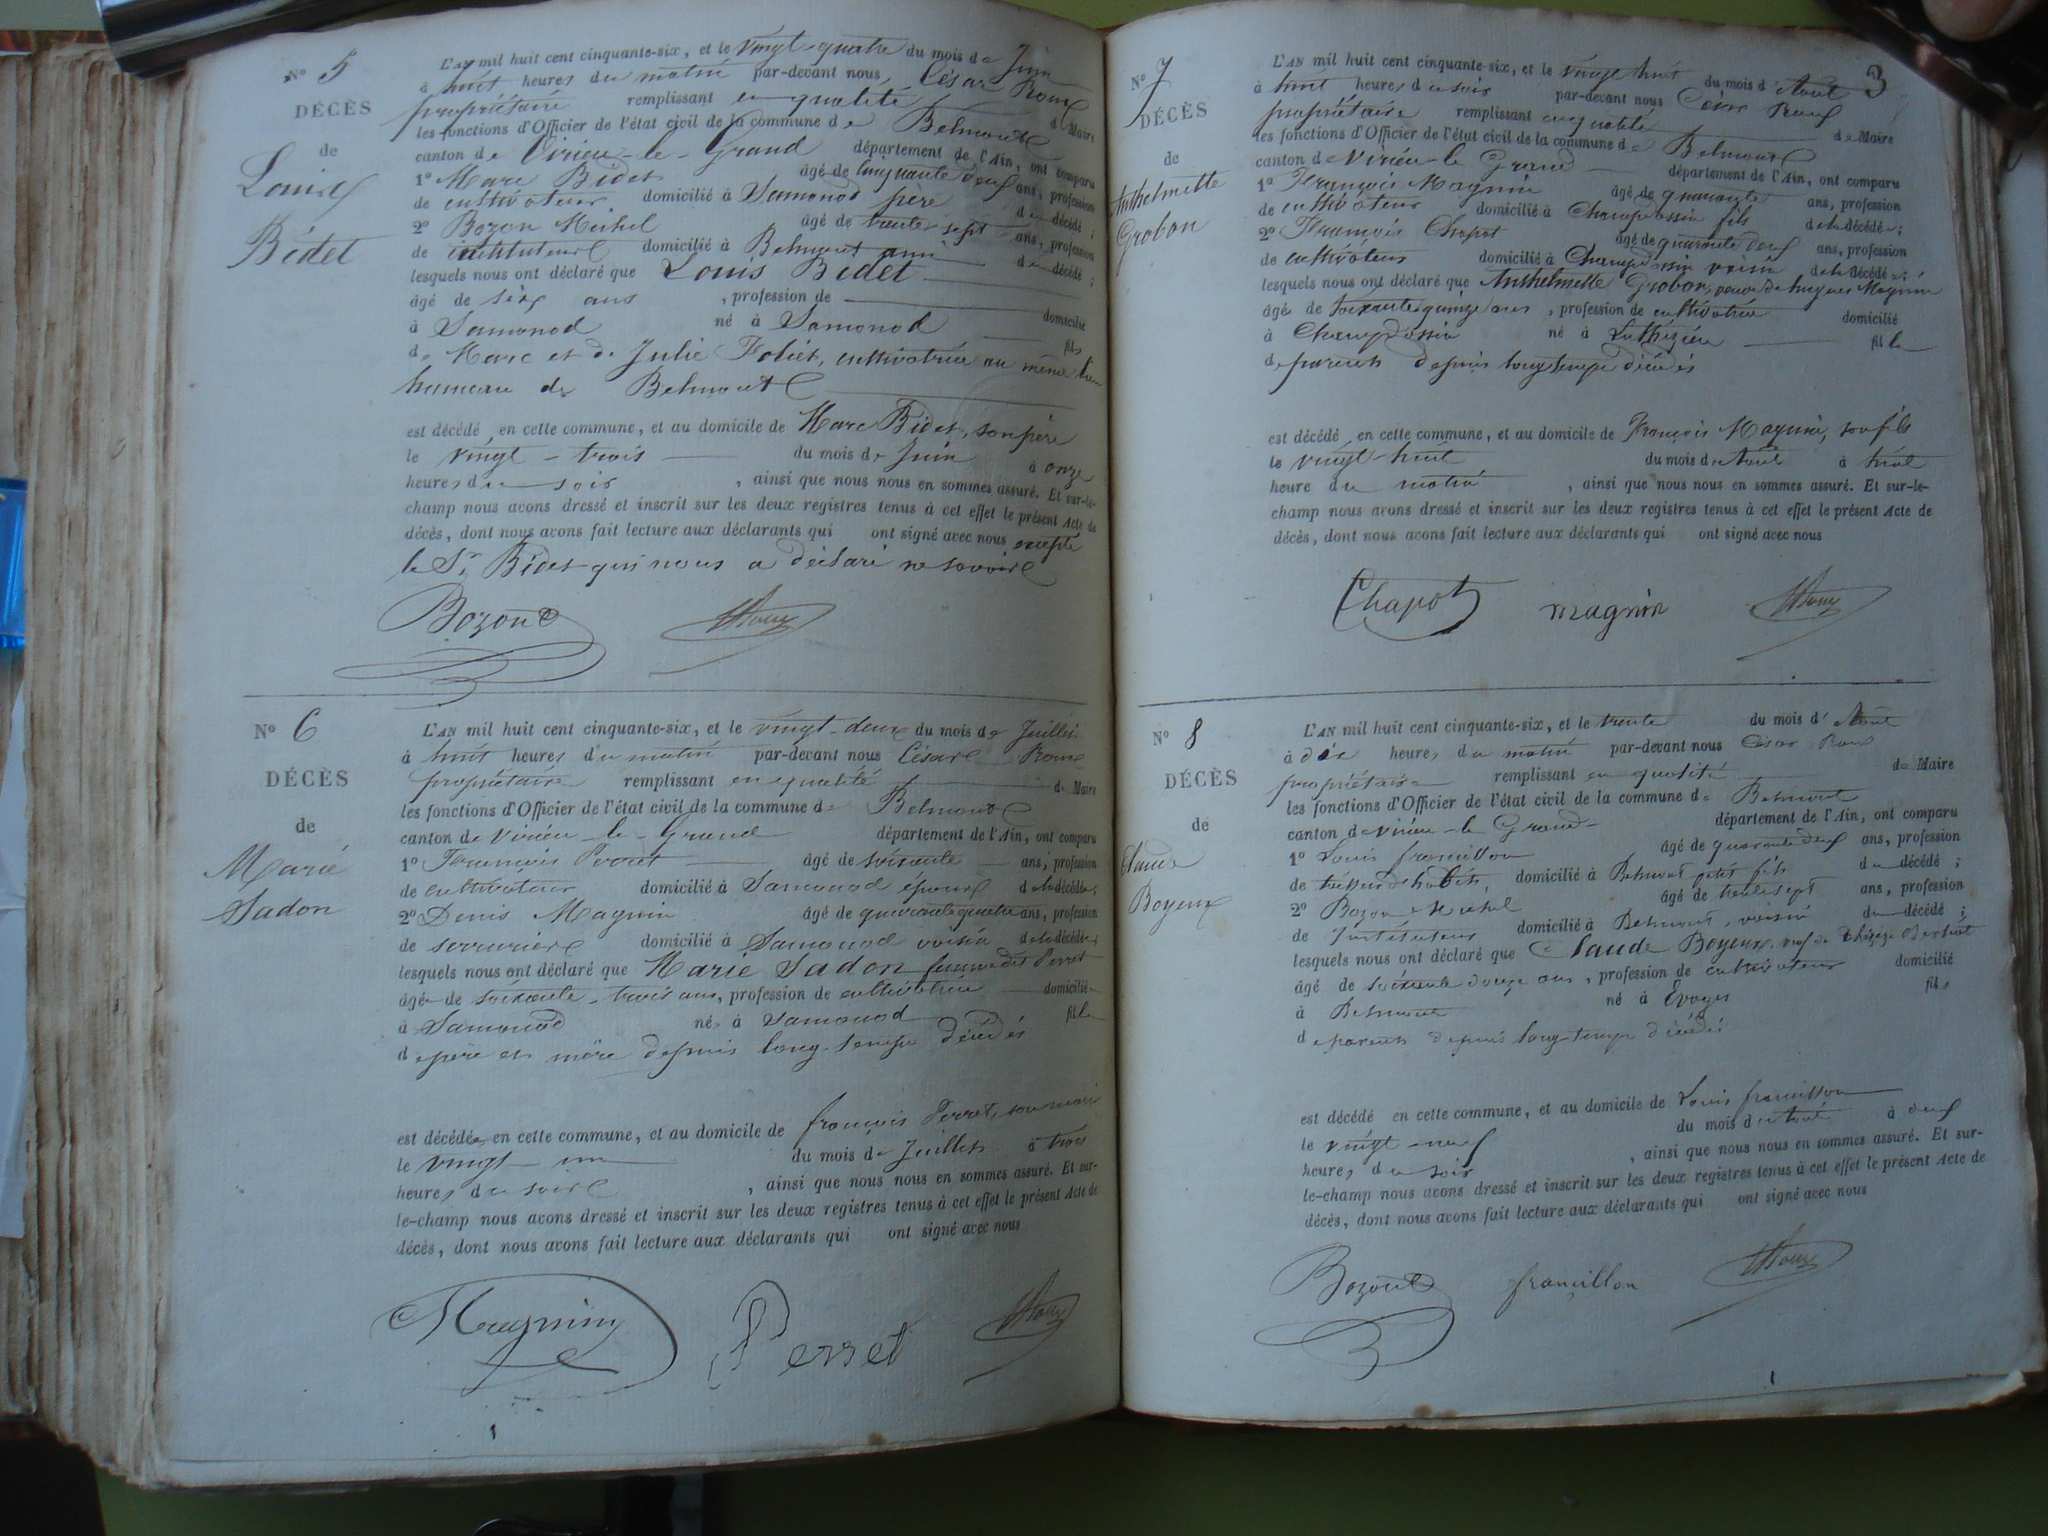 N° 5
DÉCÈS
de
Louis
Bidet
L'AN mil huit cent cinquante-six, et le vingt-quatre du mois de Juin
à huit heures du matin par-devant nous César Roux
propriétaire remplissant en qualité de Maire
les fonctions d'Officier de l'état civil de la commune de Belmont
canton de Virieu-le-Grand département de l'Ain, ont comparu
1° Marc Bidet âgé de cinquante deux ans, profession
de cultivateur domicilié à Samonod père du décédé ;
2° Bozon Michel âgé de trente-sept ans, profession
de instituteur domicilié à Belmont ami du décédé ;
lesquels nous ont déclaré que Louis Bidet
âgé de six ans , profession de domicilié
à Samonod né à Samonod fils
de Marc et de Julie Foliet, cultivatrice au même lieu
hameau de Belmont
est décédé en cette commune, et au domicile de Marc Bidet, son père
le vingt-trois du mois de Juin à onze
heures du soir , ainsi que nous nous en sommes assuré. Et sur-le-
champ nous avons dressé et inscrit sur les deux registres tenus à cet effet le présent Acte de
décès, dont nous avons fait lecture aux déclarants qui ont signé avec nous excepté
le Sr Bidet qui nous a déclaré ne savoir
Bozon
Roux
N° 6
DÉCÈS
de
Marie
Sadon
L'AN mil huit cent cinquante-six, et le vingt-deux du mois de Juillet
à huit heures du matin par-devant nous César Roux
propriétaire remplissant en qualité de Maire
les fonctions d'Officier de l'état civil de la commune de Belmont
canton de Virieu-le-Grand département de l'Ain, ont comparu
1° François Perret âgé de soixante ans, profession
de cultivateur domicilié à Samonod époux de la décédée ;
2° Denis Magnin âgé de quarante quatre ans, profession
de serrurier domicilié à Samonod voisin de la décédée ;
lesquels nous ont déclaré que Marie Sadon femme dit Perret
âgée de soixante-trois ans, profession de cultivatrice domiciliée
à Samonod née à Samonod fille
de père et mère depuis long-temps décédés
est décédée en cette commune, et au domicile de françois Perret, son mari
le vingt-un du mois de Juillet à trois
heures du soir , ainsi que nous nous en sommes assuré. Et sur-
le-champ nous avons dressé et inscrit sur les deux registres tenus à cet effet le présent Acte de
décès, dont nous avons fait lecture aux déclarants qui ont signé avec nous
Magnin
Perret
Roux
3
N° 7
DÉCÈS
de
Anthelmette
Grobon
L'AN mil huit cent cinquante-six, et le vingt huit du mois d'Août
à huit heures du soir par-devant nous César Roux
propriétaire remplissant en qualité de Maire
les fonctions d'Officier de l'état civil de la commune de Belmont
canton de Virieu-le Grand département de l'Ain, ont comparu
1° François Magnin âgé de quarante ans, profession
de cultivateur domicilié à Champdossin fils de la décédée ;
2° François Chapot âgé de quarante deux ans, profession
de cultivateur domicilié à Champdossin voisin de la décédée ;
lesquels nous ont déclaré que Anthelmette Grobon, veuve de hugues Magnin
âgé de soixante quinze ans , profession de cultivatrice domicilié
à Champdossin né à Luthézieu fille
de parents depuis long temps décédés
est décédé en cette commune, et au domicile de François Magnin, son fils
le vingt-huit du mois d'Août à huit
heure du matin , ainsi que nous nous en sommes assuré. Et sur-le-
champ nous avons dressé et inscrit sur les deux registres tenus à cet effet le présent Acte de
décès, dont nous avons fait lecture aux déclarants qui ont signé avec nous
Chapot
magnin
Roux
N° 8
DÉCÈS
de
Claude
Boyeux
L'AN mil huit cent cinquante-six, et le trente du mois d'Août
à dix heures du matin par-devant nous César Roux
propriétaire remplissant en qualité de Maire
les fonctions d'Officier de l'état civil de la commune de Belmont
canton de Virieu-le Grand département de l'Ain, ont comparu
1° Louis francillon âgé de quarante deux ans, profession
de tailleur d'habits, domicilié à Belmont petit fils du décédé ;
2° Bozon Michel âgé de trente sept ans, profession
de Instituteur domicilié à Belmont, voisin du décédé ;
lesquels nous ont déclaré que Claude Boyeux, veuf de
âgé de soixante douze ans , profession de cultivateur domicilié
à Belmont né à Evoges fils
de parents depuis long-temps décédés
est décédé en cette commune, et au domicile de Louis francillon
le vingt-neuf du mois d'Août à deux
heures du soir , ainsi que nous nous en sommes assuré. Et sur-
le-champ nous avons dressé et inscrit sur les deux registres tenus à cet effet le présent Acte de
décès, dont nous avons fait lecture aux déclarants qui ont signé avec nous
Bozon
francillon
Roux